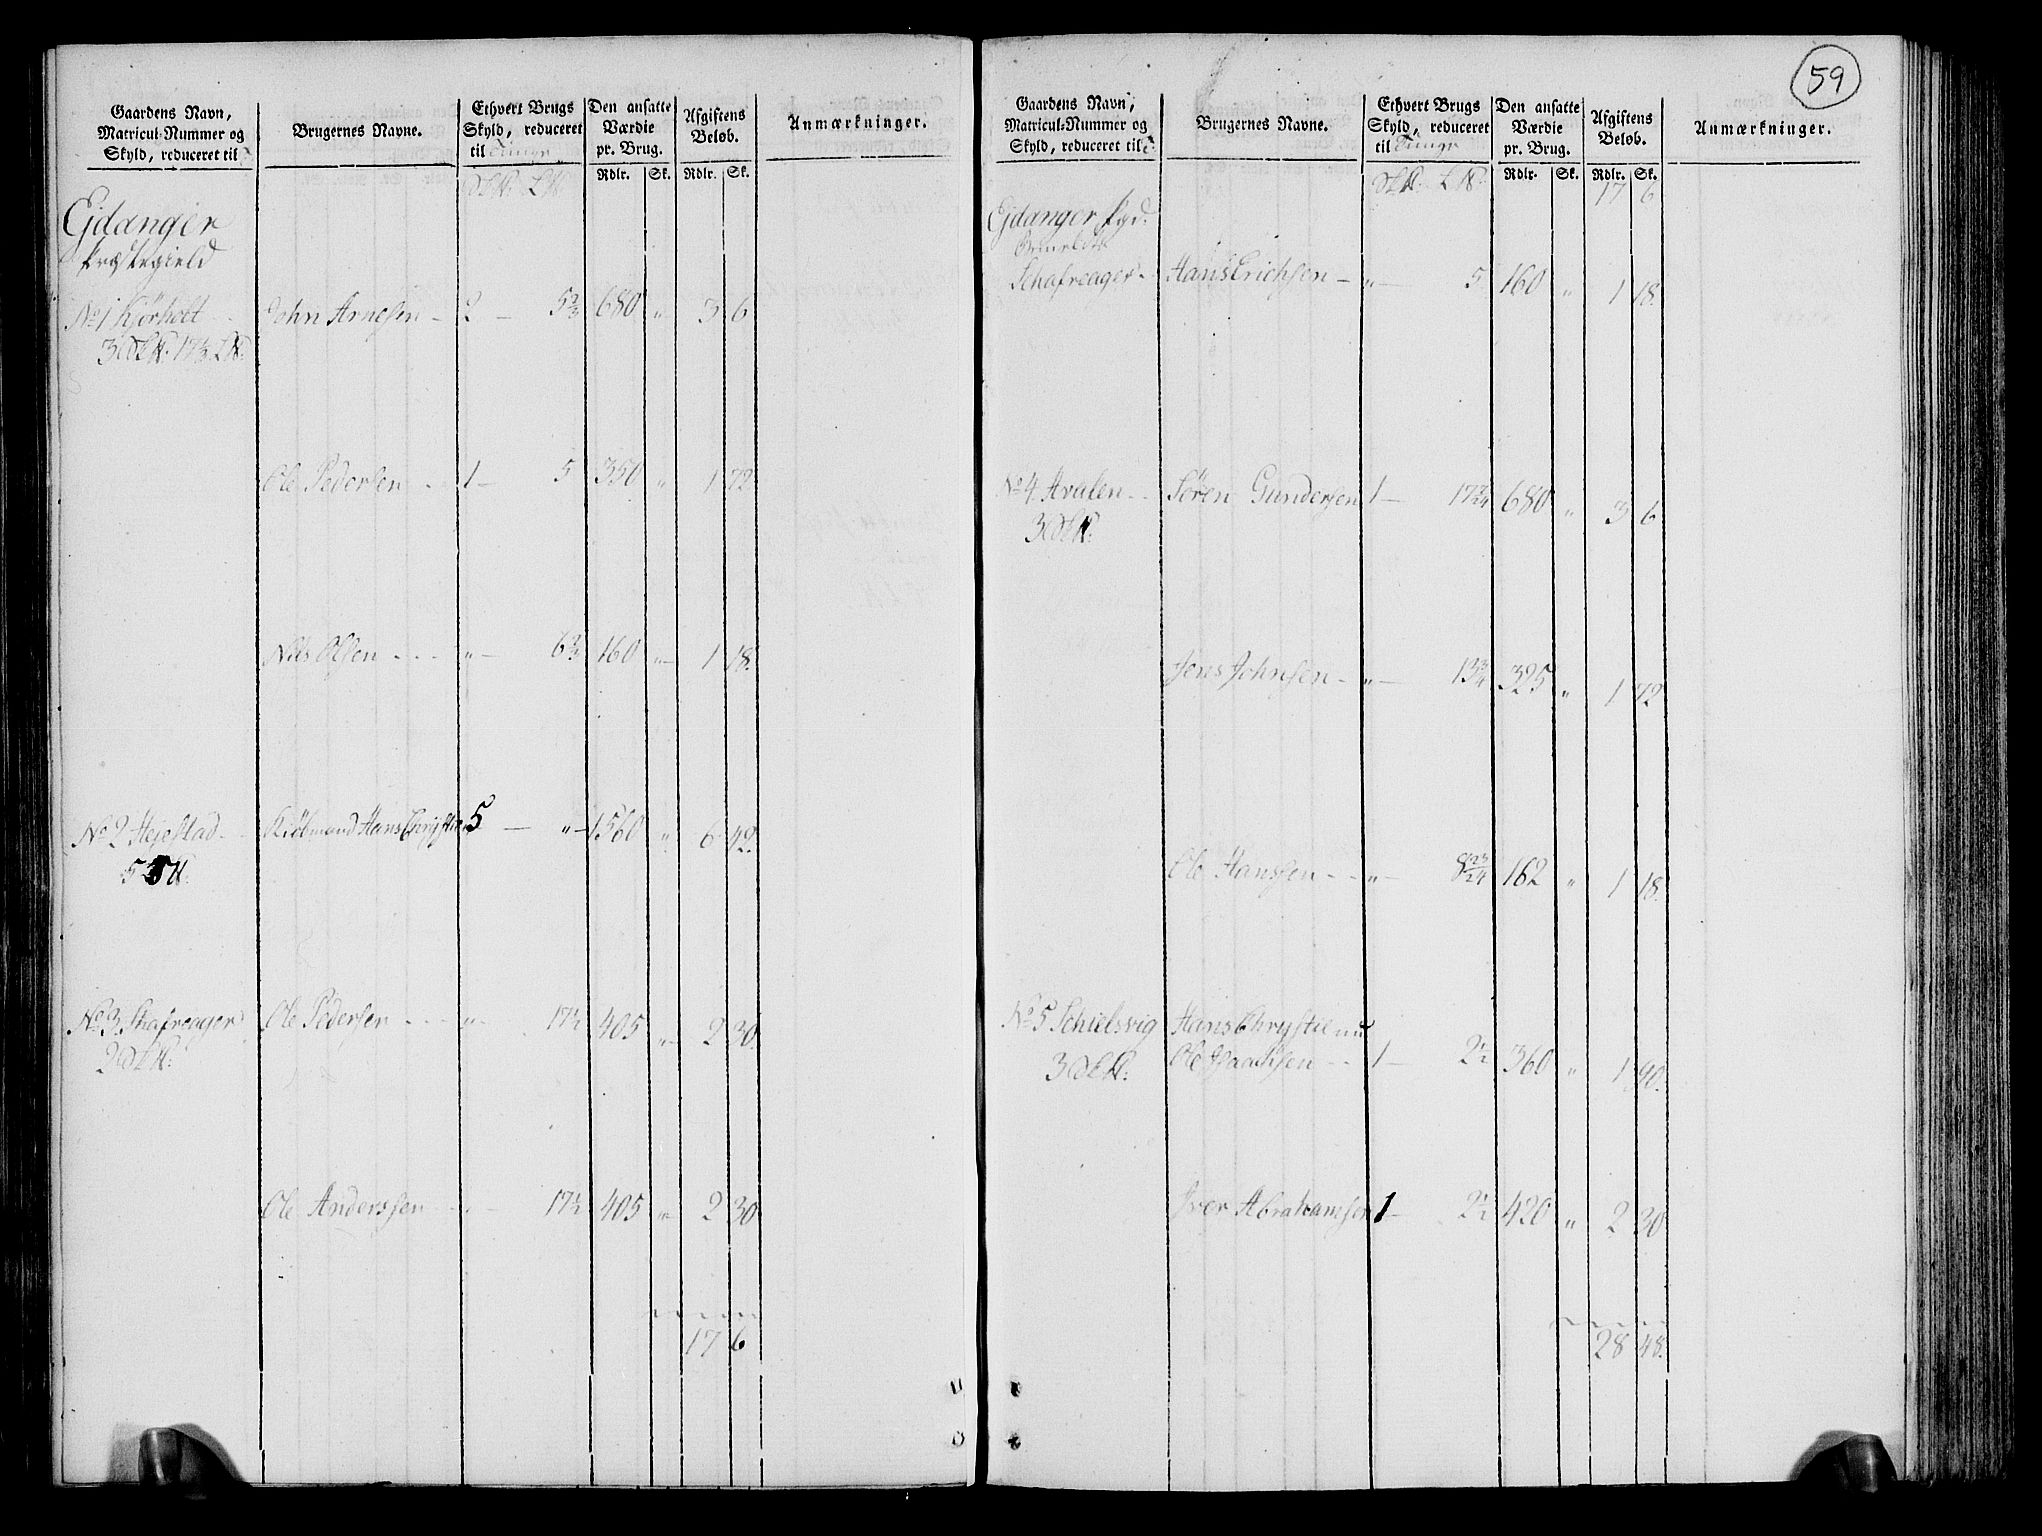 59
Gaardens Navn, Matricul-Nummer og Skyld, reduceret til
Brugernes Navne.
Ethvert Brugs Skyld, reduceret til Tunge
Den ansatte Værdie pr. Brug.
Afgiftens Beløb.
Anmærkninger.
Rdlr. Sk. Rdlr. Sk.
Ejdanger
Præstegield
No 1 Kjørholt John Arnesen 2 5 2/3 680 " 3 6
Ole Pedersen 1 5 350 " 1 72
Nils Olsen " 6 2/3 160 " 1 18.
No 2 Hejestad Kiøbmand Hans Chrystie 5 " 1560 " 6 42.
No 3 Skafreager Ole Pedersen " 17 1/2 405 " 2 30.
Ole Anderssen " 17 1/2 405 " 2 30
17 6
Gaardens Navn, Matricul-Nummer og Skyld, reduceret til
Brugernes Navne.
Ethvert Brugs Skyld, reduceret til Tunge
Den ansatte Værdie pr. Brug.
Afgiftens Beløb.
Anmærkninger.
Rdlr. Sk. Rdlr. Sk.
17 6
Ejdanger Pgd:
Schafreager Hans Erichsen " 5 160 " 1 18
No 4 Hvalen Søren Gundersen 1 680 " 3 6
Jens Johnsen " 13 3/4 325 " 1 72
Ole Hanssen " 8 23/24 162 " 1 18.
No 5 Schielsvig Hans Chrystie nu
Ole Isaachsen 1 2 1/2 360 " 1 90.
Iver Abrahamsen 1 2 1/2 420 " 2 30
28 48.